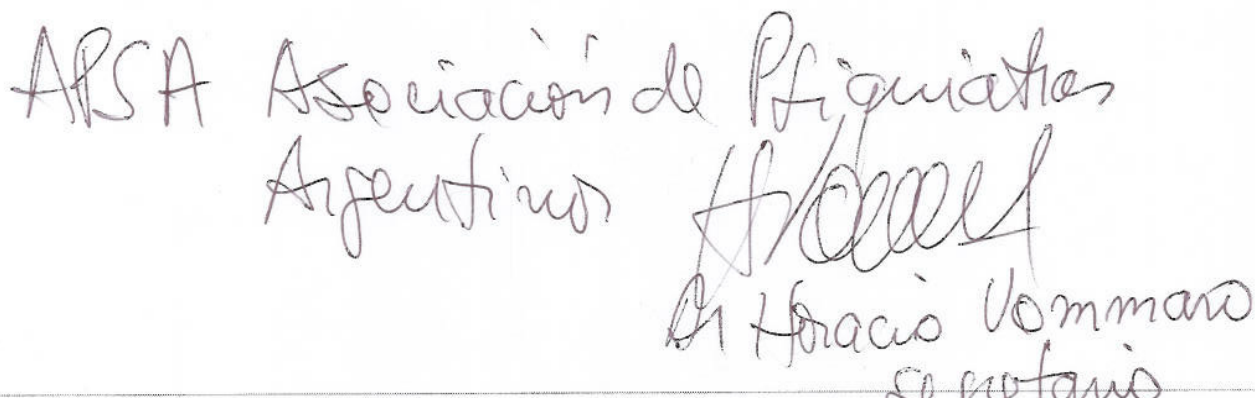 APSA Asociación de Psiquiatras
Argentinos
Dr Horacio Vommaro
secretario